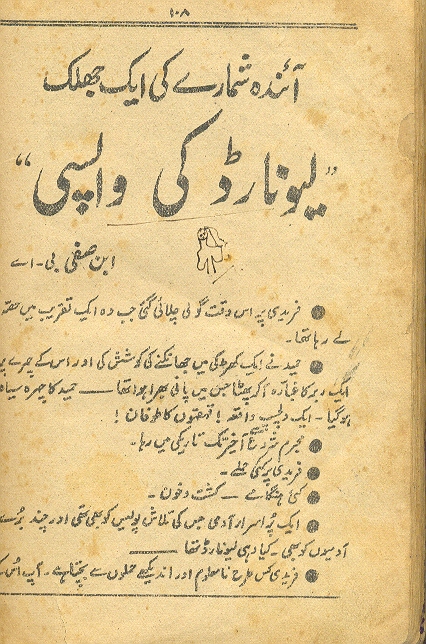 ۱۰۸
آئندہ شمارے کی ایک جھلک
"لیونارڈ کی واپسی"
ابن صفی بی۔اے
فریدی پر اس وقت گولی چلائی گئی جب وہ ایک تقریب میں حصہ
لے رہا تھا۔
حمید نے ایک کھڑکی میں جھانکنے کی کوشش کی اور اس کے چہرے پر
ایک ربر کا غبارہ آکر پھٹا جس میں پانی بھرا ہوا تھا — حمید کا چہرہ سیاہ
ہوگیا۔ ایک دلچسپ واقعہ! قہقہوں کا طوفان!
مجرم شروع سے آخر تک تاریکی میں رہا۔
فریدی پر کئی حملے۔
کئی ہنگامے — کشت و خون۔
ایک پُر اسرار آدمی جس کی تلاش پولیس کو بھی تھی اور چند بُرے
آدمیوں کو بھی۔ کیا وہی لیونارڈ تھا —
فریدی کس طرح نامعلوم اور اندیکھے حملوں سے بچتا ہے۔ آپ اُس